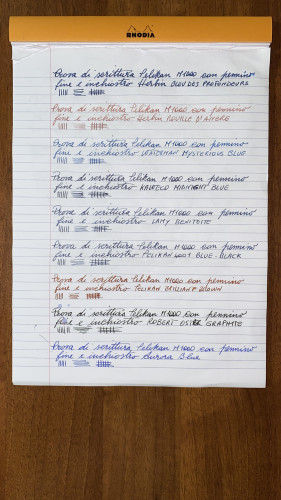 RHODIA
Prova di scrittura Pelikan M1000 con pennino
fine e inchiostro Herbin BLEU DES PROFONDEURS
Prova di scrittura Pelikan M1000 con pennino
fine e inchiostro Herbin ROUILLE D'ANCRE
Prova di scrittura Pelikan M1000 con pennino
fine e inchiostro WATERMAN MYSTERIOUS BLUE
Prova di scrittura Pelikan M1000 con pennino
fine e inchiostro MIDNIGHT BLUE
Prova di scrittura Pelikan M1000 con pennino
fine e inchiostro LAMY BENITOITE
Prova di scrittura Pelikan M1000 con pennino
fine e inchiostro PELIKAN 4001 BLUE-BLACK
Prova di scrittura Pelikan M1000 con pennino
fine e inchiostro PELIKAN BRILLIANT BROWN
Prova di scrittura Pelikan M1000 con pennino
fine e inchiostro ROBERT OSTER GRAPHITE
Prova di scrittura Pelikan M1000 con pennino
fine e inchiostro Aurora Blue